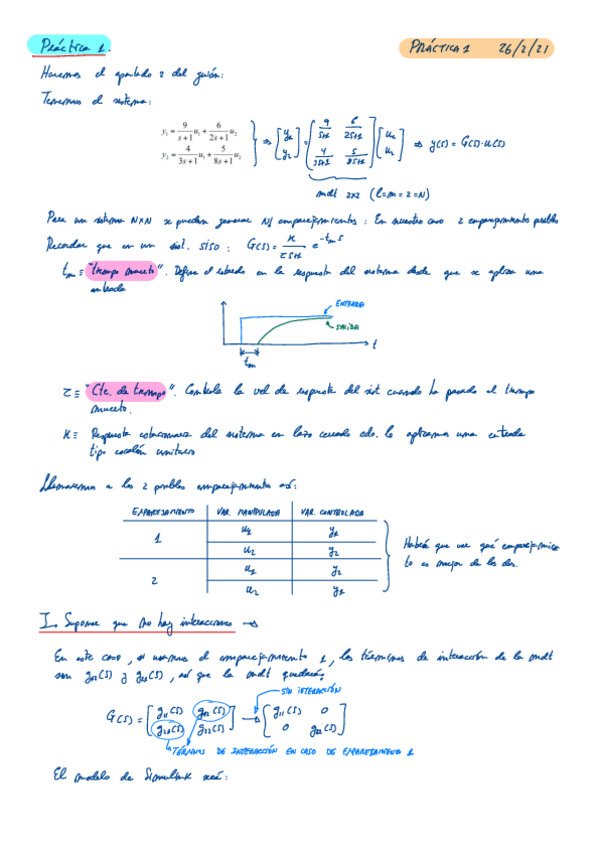 Práctica 1.
PRÁCTICA 1 26/2/21
Haremos el apartado 2 del guión:
Tenemos el sistema:
y₁ = 9/(s+1) u₁ + 6/(2s+1) u₂
y₂ = 4/(3s+1) u₁ + 5/(8s+1) u₂
⇒ [y₁ y₂] = [9/(s+1) 6/(2s+1) 4/(3s+1) 5/(8s+1)] [u₁ u₂] ⇒ y(s) = G(s)·u(s)
mdt 2x2 (l=m=2=N)
Para un sistema NxN se pueden generar N! emparejamientos: En nuestro caso 2 emparejamientos posibles
Recordar que en un sist. SISO: G(s) = K/(τs+1) e^(-tₘs)
tₘ ≡ "tiempo muerto". Define el retardo en la respuesta del sistema desde que se aplica una
entrada
ENTRADA
SALIDA
t
tₘ
τ ≡ "Cte. de tiempo". Controla la vel de respuesta del sist cuando ha pasado el tiempo
muerto.
K ≡ Respuesta estacionaria del sistema en lazo cerrado cdo. le aplicamos una entrada
tipo escalón unitario
Llamaremos a los 2 posibles emparejamientos así:
EMPAREJAMIENTO VAR. MANIPULADA VAR. CONTROLADA
1 u₁ y₁
u₂ y₂
2 u₁ y₂
u₂ y₁
Habrá que ver qué emparejamien
to es mejor de los dos.
I. Suponer que no hay interacciones →
En este caso, si usamos el emparejamiento 1, los términos de interacción de la mdt
son g₁₂(s) y g₂₁(s), así que la mdt quedará:
SIN INTERACCIÓN
G(s) = [g₁₁(s) g₁₂(s) g₂₁(s) g₂₂(s)] → [g₁₁(s) 0 0 g₂₂(s)]
TÉRMINOS DE INTERACCIÓN EN CASO DE EMPAREJAMIENTO 1
El modelo de Simulink será: